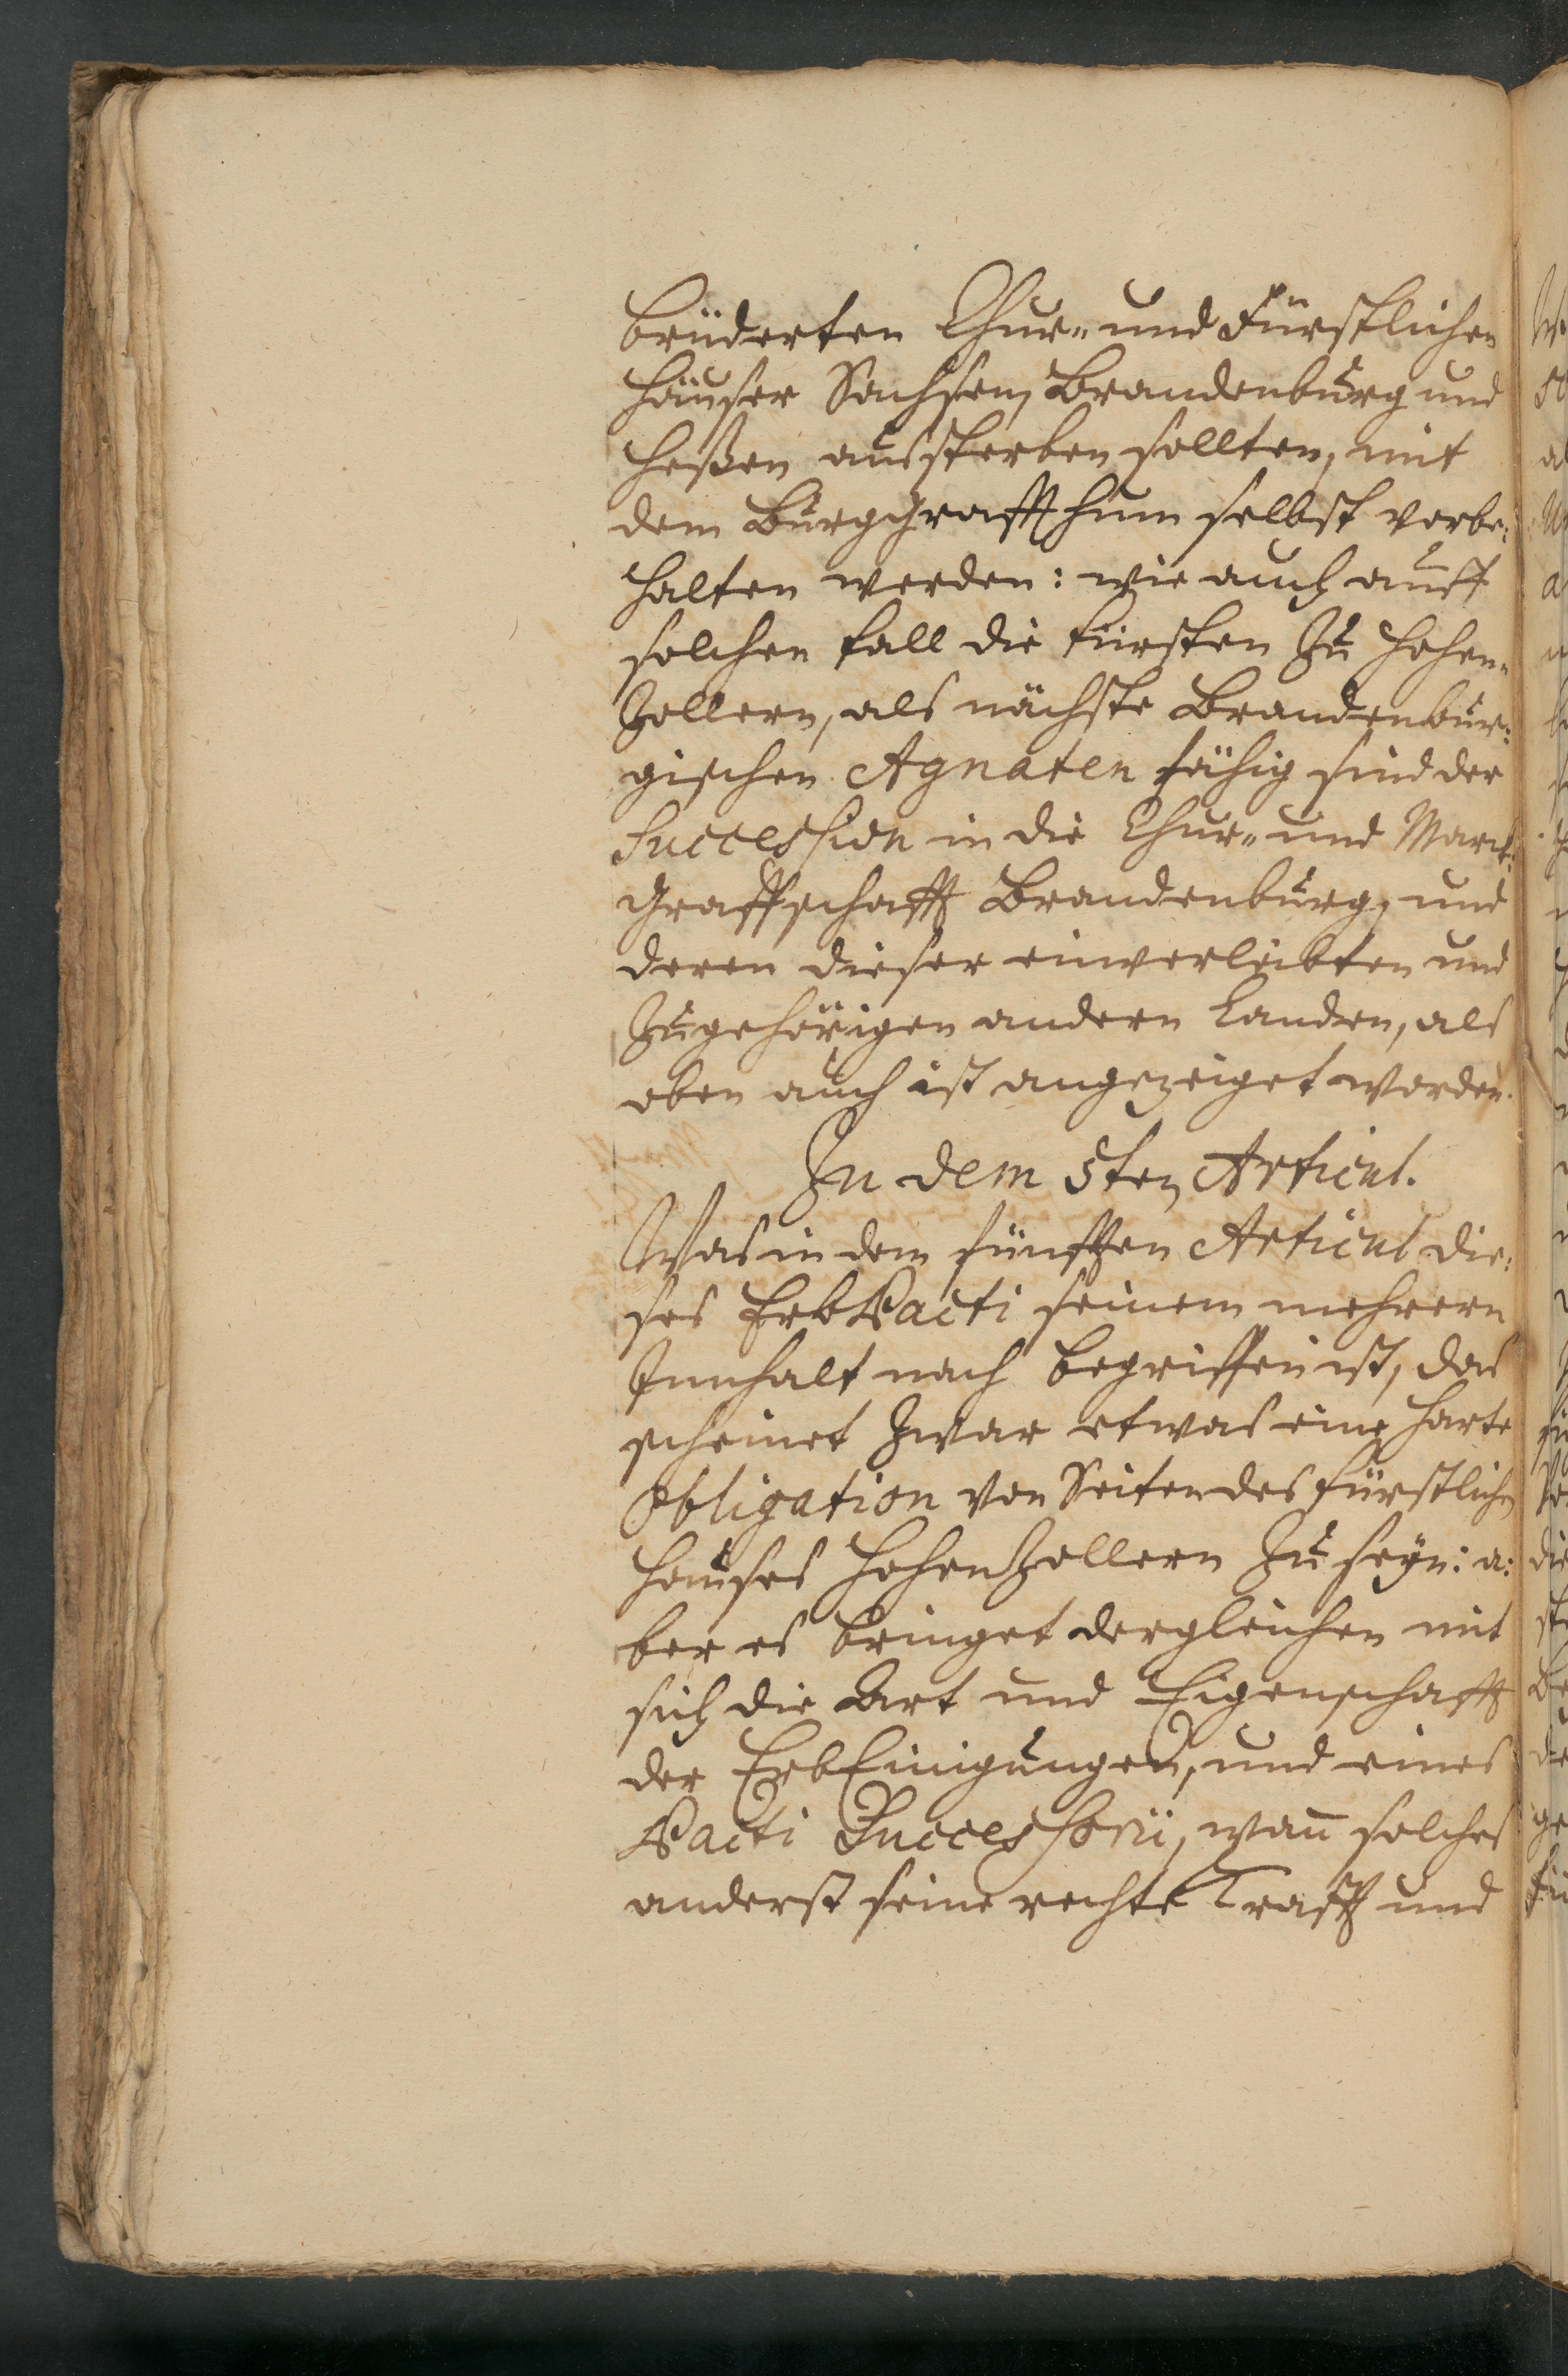 brüderten Chur- und Fürstlichen
Häuser Sachsen, Brandenburg und
Heßen aussterben sollten, mit
dem Burggraffthum selbst vorbe:
halten werden: wie auch auff
solchen fall die Fürsten zu Hohen-
zollern, als nächste Brandenbur:
gischen Agnaten fähig sind der
Succession in die Chur- und Marck:
Graffschafft Brandenburg, und
deren dieser einverleibten und
zugehörigen andern Landen, als
oben auch ist angezeiget worden.
In dem 5ten Articul.
Was in dem fünfften Articul die:
ses ErbPacti seinem mehrern
Innhalt nach begriffen ist, das
scheinet zwar etwas eine harte
Obligation von Seiten des Fürstlichen
Hauses Hohenzollern zu seyn: a:
ber es bringet dergleichen mit
sich die Art und Eigenschafft
der ErbEinigungen, und eines
Pacti Successorii, wann solches
anderst seine rechte Krafft und